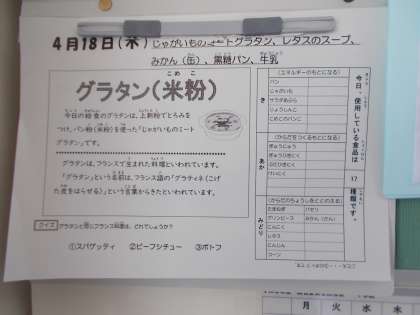 4月18日(木) じゃがいものミートグラタン、レタスのスープ、
みかん(缶)、黒糖パン、牛乳
グラタン(米粉)
今日の給食のグラタンは、上新粉でとろみを
つけ、パン粉(米粉)を使った「じゃがいものミート
グラタン」です。
グラタンは、フランスで生まれた料理といわれています。
「グラタン」という名前は、フランス語の「グラティネ(こげ
た皮をはらせる)」という言葉からきたといわれています。
クイズ グラタンと同じフランス料理は、どれでしょうか？
①スパゲッティ ②ビーフシチュー ③ポトフ
今日、使用している食品は 17 種類です。
き
(エネルギーのもとになる)
パン
じゃがいも
サラダあぶら
じょうしんこ
こめこのパンこ
あか
(からだをつくるもとになる)
ぎゅうにゅう
ぎゅうひきにく
ぶたひきにく
けいにく
みどり
(からだのちょうしをととのえる)
たまねぎ パセリ
グリンピース みかん(かん)
にんにく
レタス
にんじん
コーン
月 火 水 木